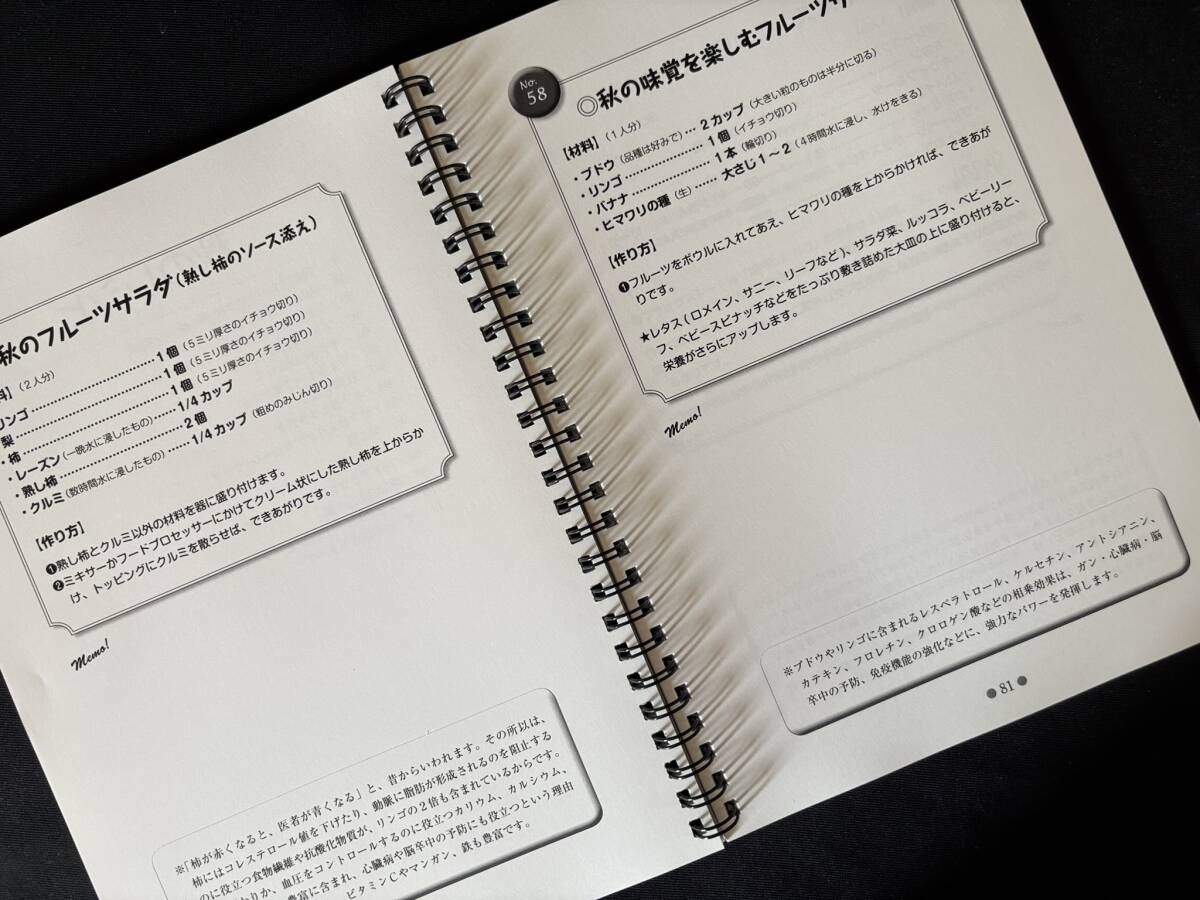 秋のフルーツサラダ(熟し柿のソース添え)
料】(2人分)
リンゴ……1個(5ミリ厚さのイチョウ切り)
梨……1個(5ミリ厚さのイチョウ切り)
・柿……1個(5ミリ厚さのイチョウ切り)
・レーズン(一晩水に浸したもの)……1/4カップ
・熟し柿……2個
・クルミ(数時間水に浸したもの)……1/4カップ(粗めのみじん切り)
【作り方】
❶熟し柿とクルミ以外の材料を器に盛り付けます。
❷ミキサーかフードプロセッサーにかけてクリーム状にした熟し柿を上からか
け、トッピングにクルミを散らせば、できあがりです。
Memo!
※「柿が赤くなると、医者が青くなる」と、昔からいわれます。その所以は、
柿にはコレステロール値を下げたり、動脈に脂肪が形成されるのを阻止する
のに役立つ食物繊維や抗酸化物質が、リンゴの2倍も含まれているからです。
かりか、血圧をコントロールするのに役立つカリウム、カルシウム、
豊富に含まれ、心臓病や脳卒中の予防にも役立つという理由
ビタミンCやマンガン、鉄も豊富です。
No.
58
◎秋の味覚を楽しむフルーツサ
【材料】(1人分)
・ブドウ(品種は好みで)…2カップ(大きい粒のものは半分に切る)
・リンゴ……1個(イチョウ切り)
・バナナ……1本(輪切り)
・ヒマワリの種(生)……大さじ1～2(4時間水に浸し、水けをきる)
【作り方】
❶フルーツをボウルに入れてあえ、ヒマワリの種を上からかければ、できあが
りです。
★レタス(ロメイン、サニー、リーフなど)、サラダ菜、ルッコラ、ベビーリー
フ、ベビースピナッチなどをたっぷり敷き詰めた大皿の上に盛り付けると、
栄養がさらにアップします。
Memo!
※ブドウやリンゴに含まれるレスベラトロール、ケルセチン、アントシアニン、
カテキン、フロレチン、クロロゲン酸などの相乗効果は、ガン・心臓病・脳
卒中の予防、免疫機能の強化などに、強力なパワーを発揮します。
●81●